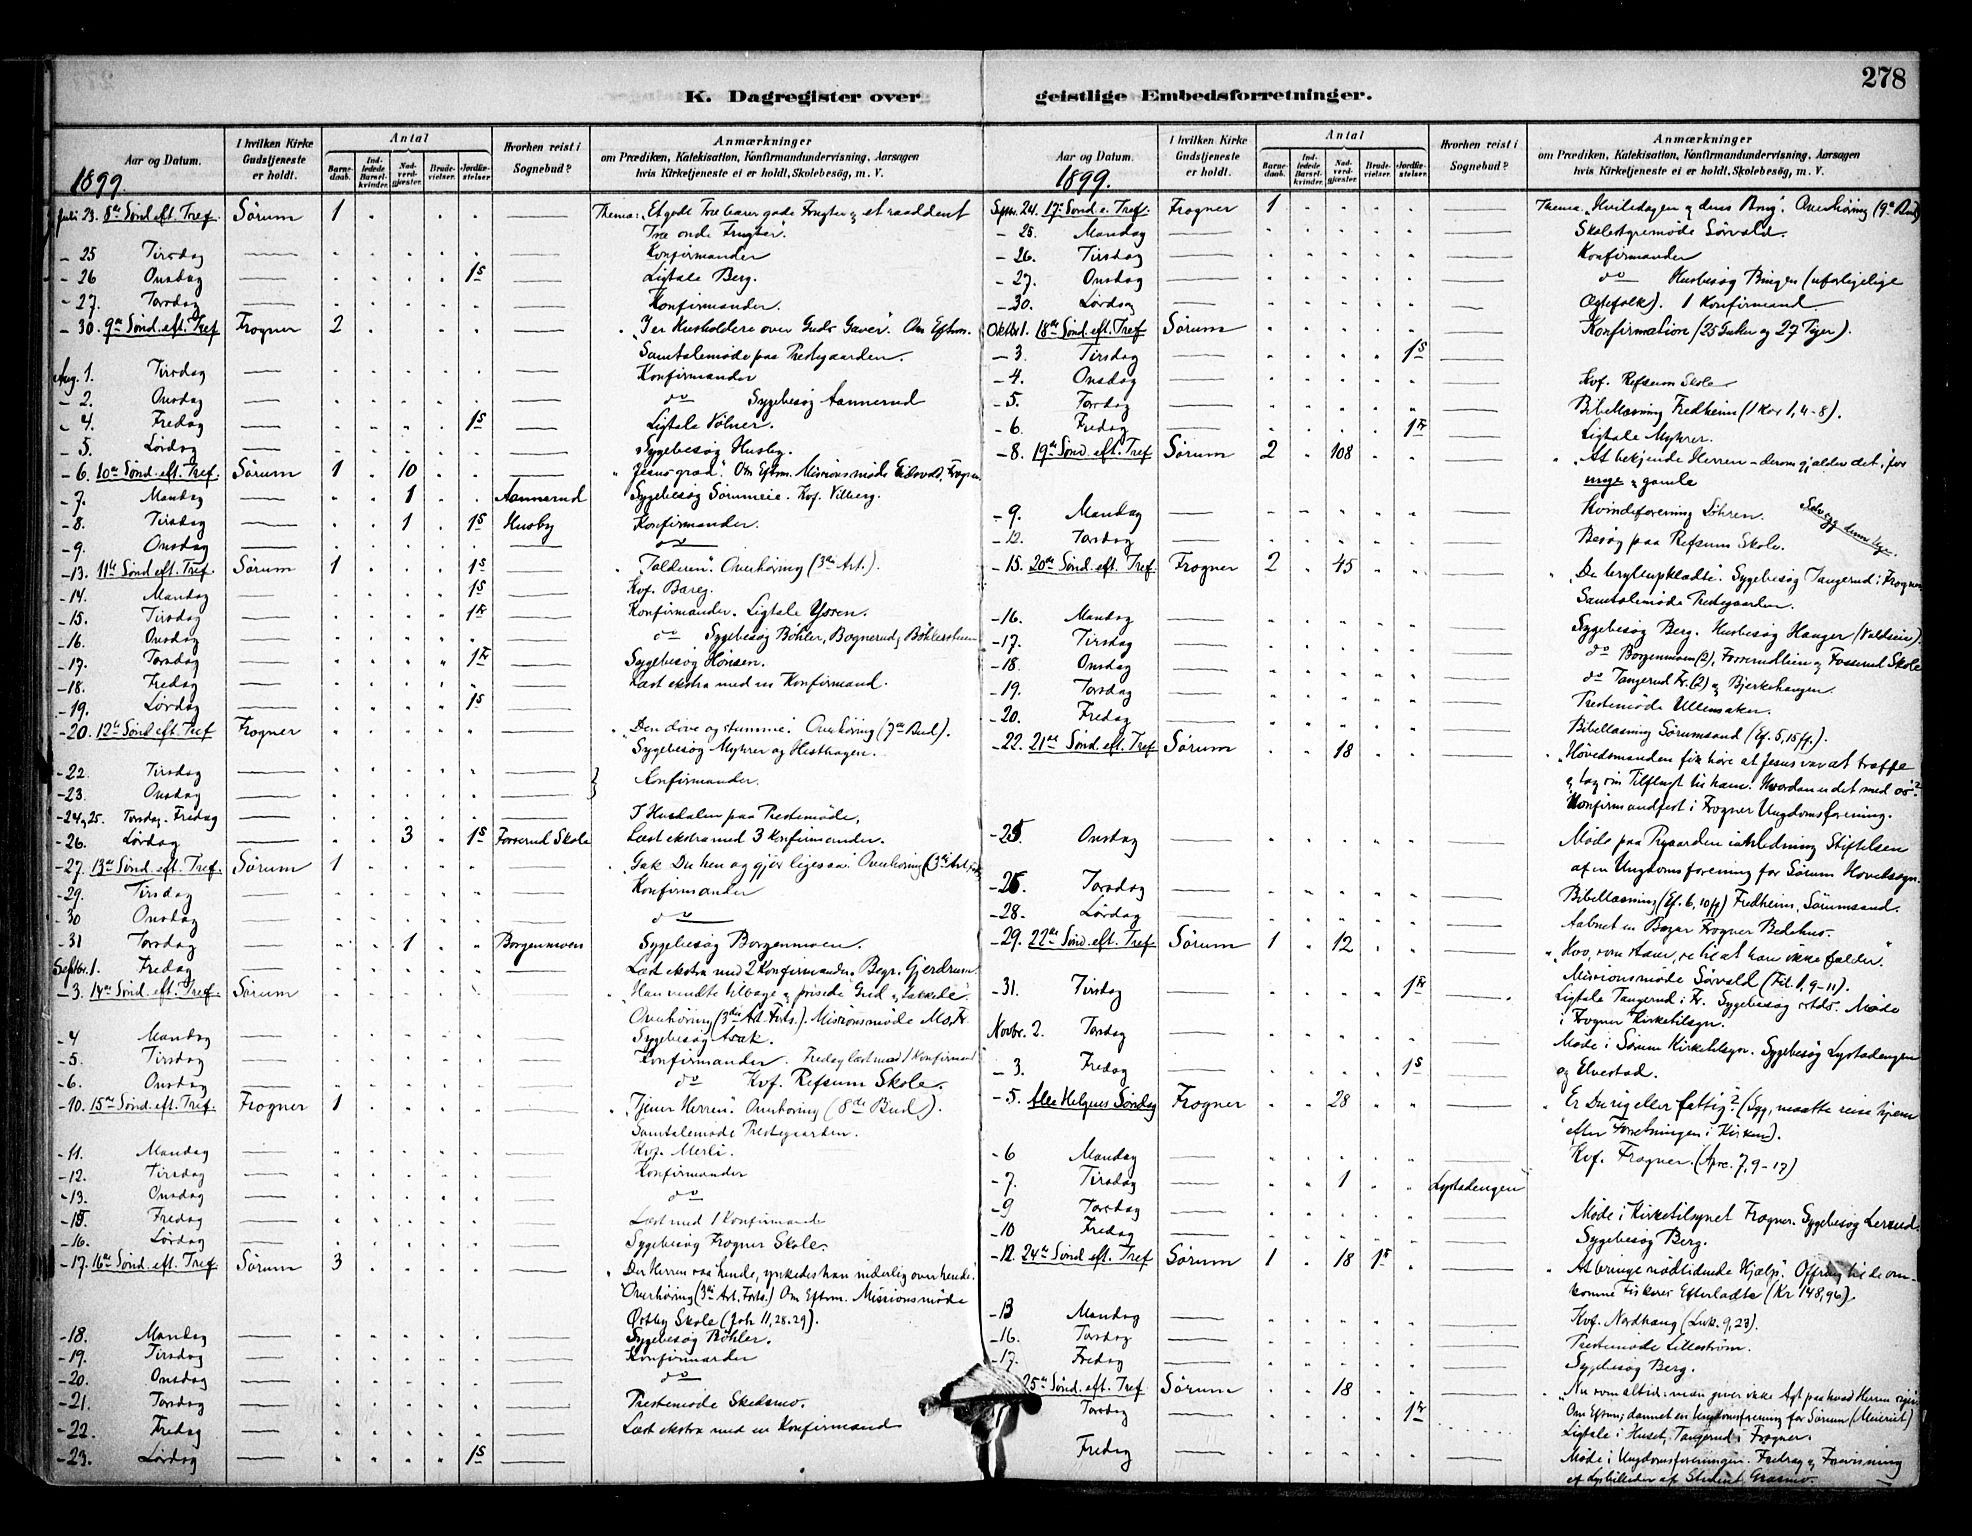 278
K. Dagregister over geistlige Embedsforretninger.
Aar og Datum.
I hvilken Kirke Gudstjeneste er holdt.
Antal
Barnedaab.
Indledede Barselkvinder.
Nadverdgjæster.
Brudevielser.
Jordfæstelser.
Hvorhen reist i Sognebud?
Anmærkninger
om Prædiken, Katekisation, Konfirmandundervisning, Aarsagen
hvis Kirketjeneste ei er holdt, Skolebesøg, m. V.
1899.
Juli 23. 8de Sønd. eft. Tref. Sørum 1 Thema: "Et godt Træ bærer gode Frugter og et raaddent
Træ onde Frugter.
- 25 Tirsdag Konfirmander
- 26 Onsdag 1 S Ligtale Berg.
- 27. Torsdag Konfirmander.
- 30. 9de Sønd. eft. Tref Frogner 2 "I er Husholdere over Guds Gaver". Om Eftm.
Samtalemøde paa Prestegaarden.
Aug. 1. Tirsdag Konfirmander
- 2. Onsdag do Sygebesøg Aannerud
- 4. Fredag 1 S Ligtale Vølner.
- 5. Lørdag Sygebesøg Husby.
- 6. 10de Sønd. eft. Tref. Sørum 1 10 "Jesu graad". Om Eftm. Missionsmøde Frogner
- 7. Mandag 1 Aannerud Sygebesøg Sørumeie. Kvf. Vilberg.
- 8. Tirsdag 1 1 S Husby Konfirmander.
- 9. Onsdag do
- 13. 11te Sønd. eft. Tref. Sørum 1 1 S "Tolderen". Overhøring (3die Art.).
- 14. Mandag 1 S Kvf. Bareg.
- 15. Tirsdag 1 Fr Konfirmander. Ligtale
- 16. Onsdag do Sygebesøg Bøhler, Bognerud,
- 17. Torsdag 1 Fr Sygebesøg Hønsen.
- 18. Fredag Læst ekstra med en Konfirmand.
- 19. Lørdag 1 S
- 20. 12te Sønd. eft. Tref Frogner "Den døve og stumme". Overhøring (7de Bud).
Sygebesøg Myhrer og Hesthagen.
- 22. Tirsdag Konfirmander.
- 23. Onsdag
- 24 og 25. Torsdag. Fredag I Hurdalen paa Prestemøde.
- 26. Lørdag 3 1 S Fosserud Skole Læst ekstra med 3 Konfirmander.
- 27. 13de Sønd. eft. Tref. Sørum 1 "Gak Du hen og gjør ligesaa". Overhøring (3die Art.
- 29. Tirsdag Konfirmander
- 30 Onsdag do
- 31 Torsdag 1 Borgenmoen Sygebesøg Borgenmoen.
Septbr. 1. Fredag Læst ekstra med 2 Konfirmander. Begr. Gjerdrum
- 3. 14de Sønd. eft. Tref. Sørum "Han vendte tilbage og prisede Gud og takkede".
Overhøring (3die Art. Forts.). Missionsmøde Mo, Fr.
- 4 Mandag Sygebesøg Asak.
- 5. Tirsdag Konfirmander. Fredag læst med 1 Konfirmand
- 6. Onsdag do Kvf. Refsum Skole.
- 10. 15de Sønd. eft. Tref. Frogner 1 "Tjener Herren". Overhøring (8de Bud).
Samtalemøde Prestegaarden.
- 11. Mandag Kvf. Merli.
- 12. Tirsdag Konfirmander
- 13. Onsdag do
- 15. Fredag Læst med 1 Konfirmand
- 16. Lørdag Sygebesøg Frogner Skole.
- 17. 16de Sønd. eft. Tref Sørum 3 "Der Herren saa hende, ynkedes han inderlig over hende".
Overhøring (3die Art. Forts.) Om Eftm. Missionsmøde
Østby Skole (Joh 11, 28.29).
- 18. Mandag Sygebesøg Bøhler.
- 19. Tirsdag Konfirmander
- 20. Onsdag do
- 21. Torsdag Prestemøde Skedsmo.
- 22. Fredag Læst ekstra med en Konfirmand
- 23. Lørdag 1 S
Aar og Datum.
I hvilken Kirke Gudstjeneste er holdt.
Antal
Barnedaab.
Indledede Barselkvinder.
Nadverdgjæster.
Brudevielser.
Jordfæstelser.
Hvorhen reist i Sognebud?
Anmærkninger
om Prædiken, Katekisation, Konfirmandundervisning, Aarsagen
hvis Kirketjeneste ei er holdt, Skolebesøg, m. V.
1899.
Septr. 24. 17de Sønd. e. Tref. Frogner 1 Thema "Hviledagen og dens Brug". Overhøring (9de Bud)
- 25. Mandag Skolestyremøde Sørvald.
- 26. Tirsdag Konfirmander
- 27. Onsdag do Husbesøg Bingen (uforligelige
- 30. Lørdag Ægtefolk). 1 Konfirmand
Oktbr 1. 18de Sønd. eft. Tref Sørum Konfirmation (25 Gutter og 27 Piger).
- 3. Tirsdag 1 S
- 4. Onsdag Kvf. Refsum Skole
- 5. Torsdag Bibellæsning Fredheim (1 Kor 1, 4-8).
- 6. Fredag 1 Fr Ligtale Myhrer.
- 8. 19de Sønd. eft. Tref Sørum 2 108 "At bekjende Herren - derom gjælder det", for
unge og gamle
- 9. Mandag Kvindeforening Løhren.
- 12. Torsdag Besøg paa Refsum Skole.
- 15. 20de Sønd. eft. Tref. Frogner 2 45 "De bryllupsklædte". Sygebesøg Tangerud i Frogner
Samtalemøde Prestegaarden.
- 16. Mandag Sygebesøg Berg. Husbesøg Hanger
- 17. Tirsdag do Borgenmoen (2), og Fosserud Skole
- 18. Onsdag do Tangerud Fr. (2) og Bjerkehaugen.
- 19. Torsdag Prestemøde Ullensaker.
- 20. Fredag Bibellæsning Sørumsand (Ef. 5, 15 ff.).
- 22. 21de Sønd. eft. Tref Sørum 18 "Høvedsmanden fik høre at Jesus var at træffe
og tog sin Tilflugt til ham. Hvordan er det med os"?
Konfirmandfest i Frogner Ungdomsforening.
- 25 Onsdag Møde paa i Anledning Stiftelsen
af en Ungdomsforening for Sørum Hovedsogn.
- 26. Torsdag Bibellæsning (Ef. 6, 10 ff) Fredheim, Sørumsand.
- 28. Lørdag Aabnet en Bazar Frogner Bedehus.
- 29. 22de Sønd. eft. Tref Sørum 1 12 "Hvo, som staar, se til at han ikke falder".
Missionsmøde Sørvald (Fil. 1, 9-11).
- 31. Tirsdag 1 Fr Ligtale Tangerud i Fr. Sygebesøg Møde
i Frogner Kirketilsyn.
Novbr. 2. Torsdag Møde i Sørum Kirketilsyn. Sygebesøg Lystadengen
- 3. Fredag 1 S og Elvestad.
- 5. Alle Helgens Søndag Frogner 28 "Er Du rig eller fattig"? (Syg, maatte reise hjem
efter Forretningen i Kirken).
- 6 Mandag Kvf. Frogner. (Apoc. 7, 9-17)
- 7. Tirsdag 1 Lystadengen
- 9 Torsdag Møde i Kirketilsynet Frogner. Sygebesøg Lerud.
- 10 Fredag Sygebesøg Berg.
- 12. 24de Sønd. eft. Tref Sørum 1 18 1 S "At bringe nødlidende Hjælp". Offring til de om-
komne Fiskeres Efterladte (Kr 148,96).
- 13 Mandag Kvf. Nordhaug (Luk. 9, 23).
- 16. Torsdag Prestemøde Lillestrøm.
- 17. Fredag Sygebesøg Berg.
25de Sønd. eft. Tref Sørum 18 "Nu som altid: man giver ikke Agt paa hvad Herren siger"
Torsdag 1 Fr Om Eftm; dannet en Ungdomsforening for Sørum (Meieriet)
Ligtale i Huset, Tangerud i Frogner.
Fredag Møde i Ungdomsforeningen. Foredrag og Forevisning
af Lysbilleder af Student